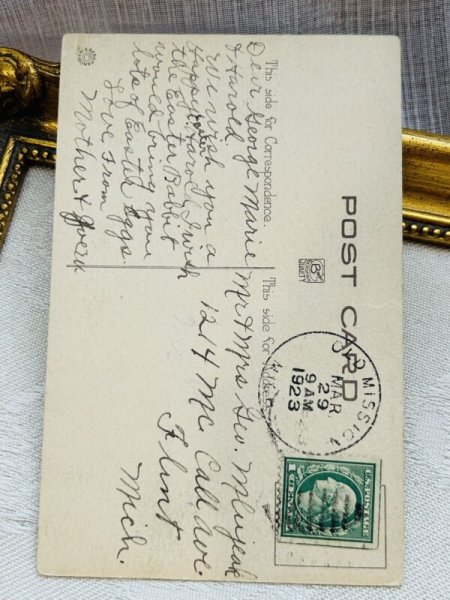 POST CARD
This side for Correspondence
This side for Address
Dear George Marie
& Harold.
We wish you a
Happy Harold, I wish
the Easter Rabbit
would bring you
lots of Easter Eggs.
Love From
Mother &
Mr & Mrs Geo.
1214 Mc Call ave.
Flint
Mich.
MAR
29
9 AM
1923
U.S. POSTAGE
1 CENT 1